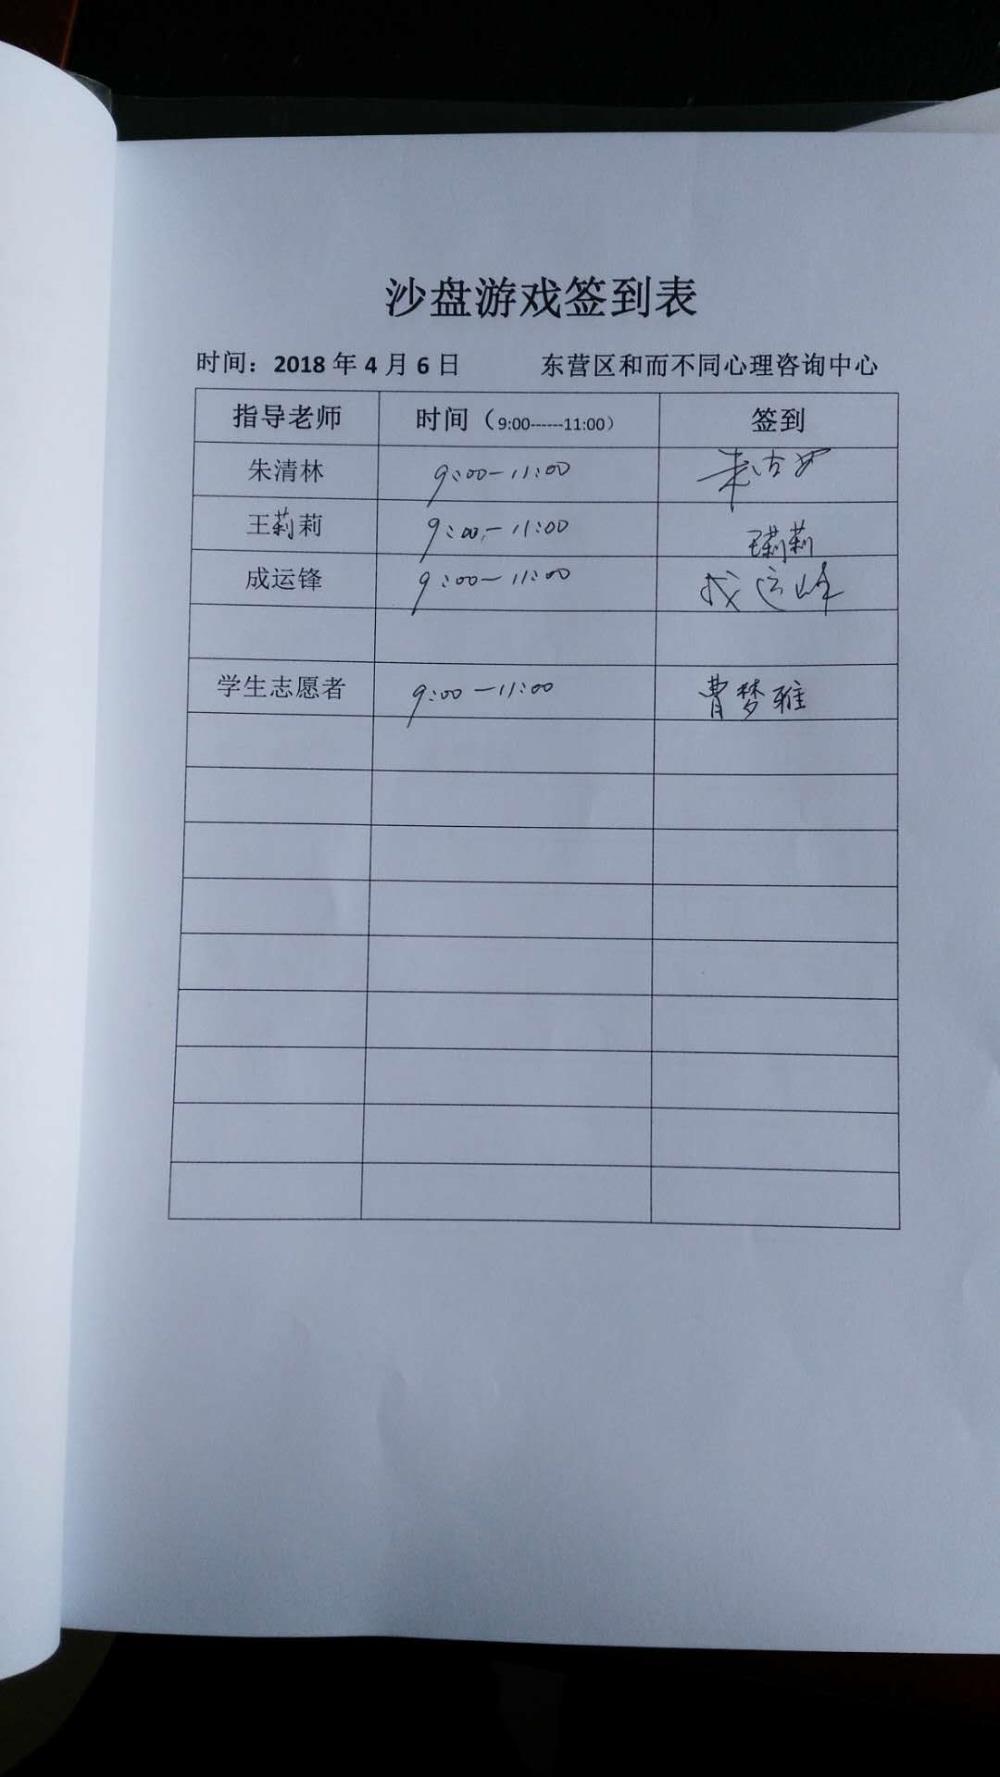 沙盘游戏签到表
时间：2018 年 4 月 6 日 东营区和而不同心理咨询中心
指导老师 时间（9:00------11:00） 签到
朱清林 9:00-11:00
王莉莉 9:00-11:00 王莉莉
成运锋 9:00-11:00 成运峰
学生志愿者 9:00-11:00 曹梦雅